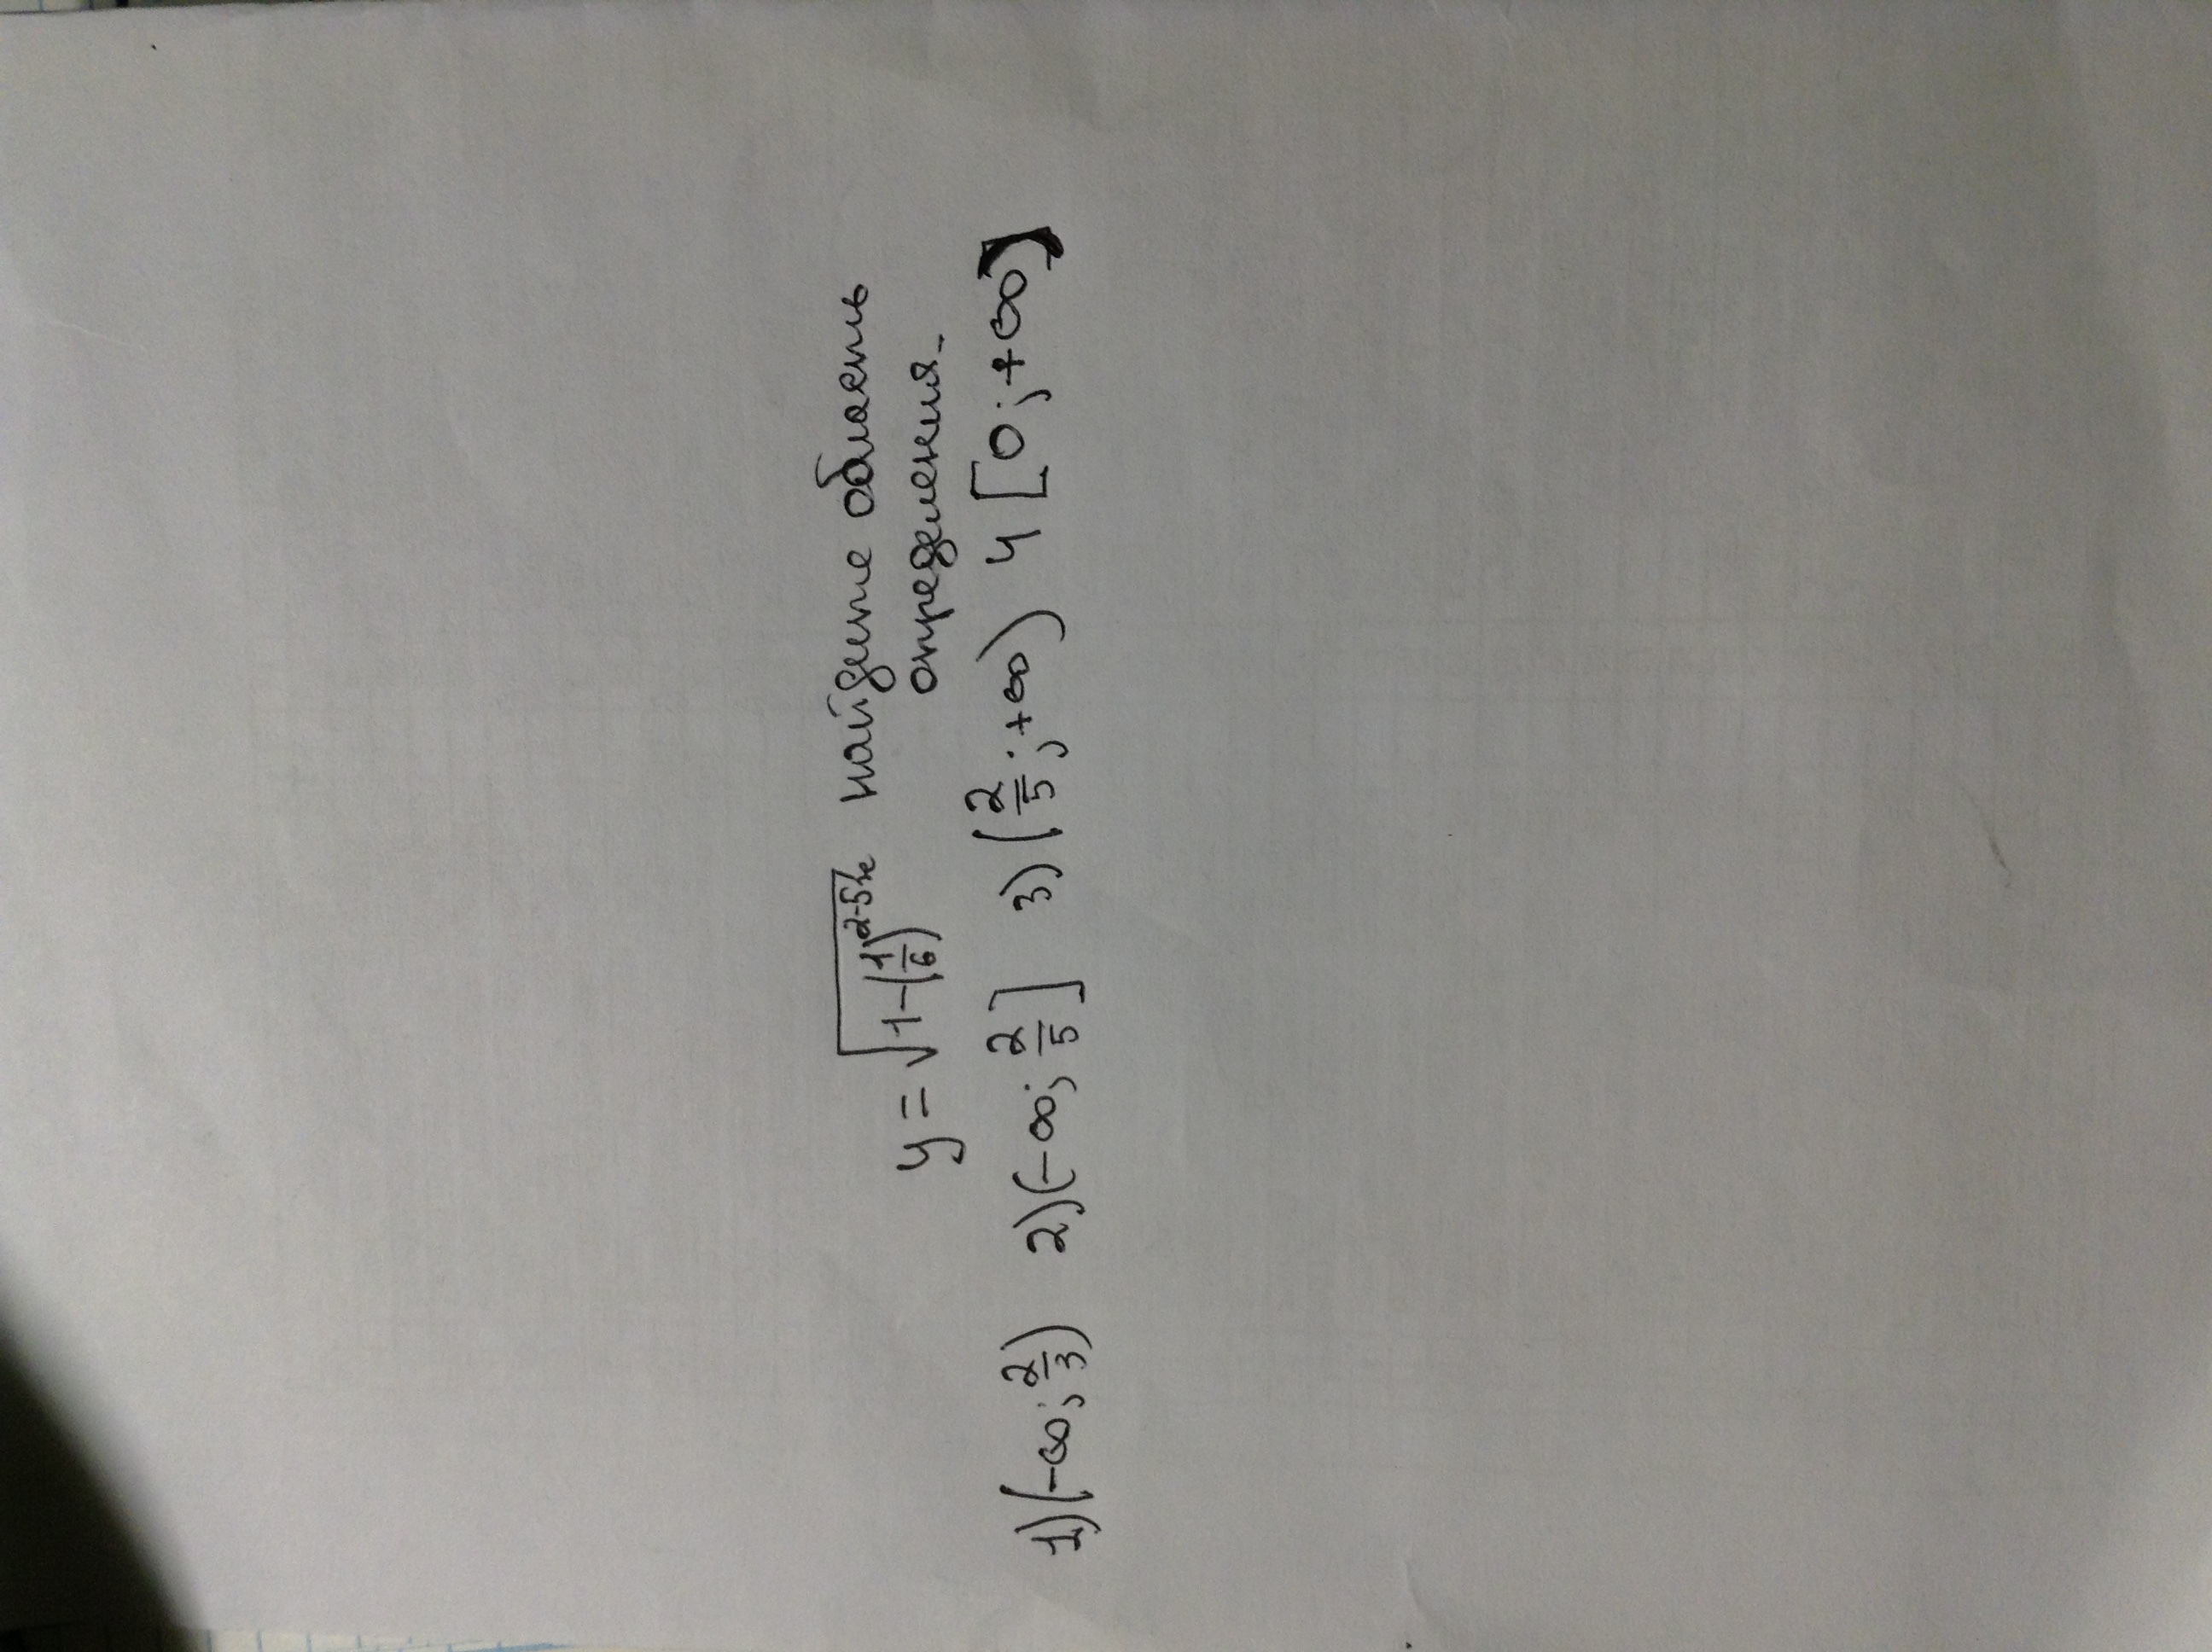 y = √(1-(1/6)^(2-5x)) найдите область
определения.
1) (-∞; 2/3) 2) (-∞; 2/5] 3) (2/5; +∞) 4 [0; +∞)